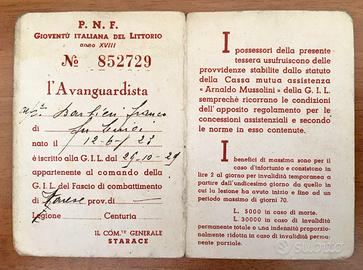 P. N. F.
GIOVENTÙ ITALIANA DEL LITTORIO
anno XVIII
№ 852729
l'Avanguardista
Barbieri Franco
di fu
nato il 12-6-27
è iscritto alla G.I.L. dal 29-10-29
appartenente al comando della
G.I.L. del Fascio di combattimento
di Varese prov. di —
Legione Centuria
IL COM.TE GENERALE
STARACE
I possessori della presente
tessera usufruiscono delle
provvidenze stabilite dallo statuto
della Cassa mutua assistenza
« Arnaldo Mussolini » della G. I. L.
semprechè ricorrano le condizioni
dell'apposito regolamento per le
concessioni assistenziali e secondo
le norme in esso contenute.
I benefici di massima sono per il
caso d'infortunio e consistono in
lire 2 al giorno per invalidità tempora-
nea a partire dall'undicesimo giorno da quello in
cui la lesione ha avuto inizio e fino ad un
periodo massimo di giorni 70.
L. 5000 in caso di morte.
L. 30000 in caso di invalidità
permanente totale o una indennità proporzio-
nalmente ridotta in caso di invalidità perma-
nente parziale.
subito